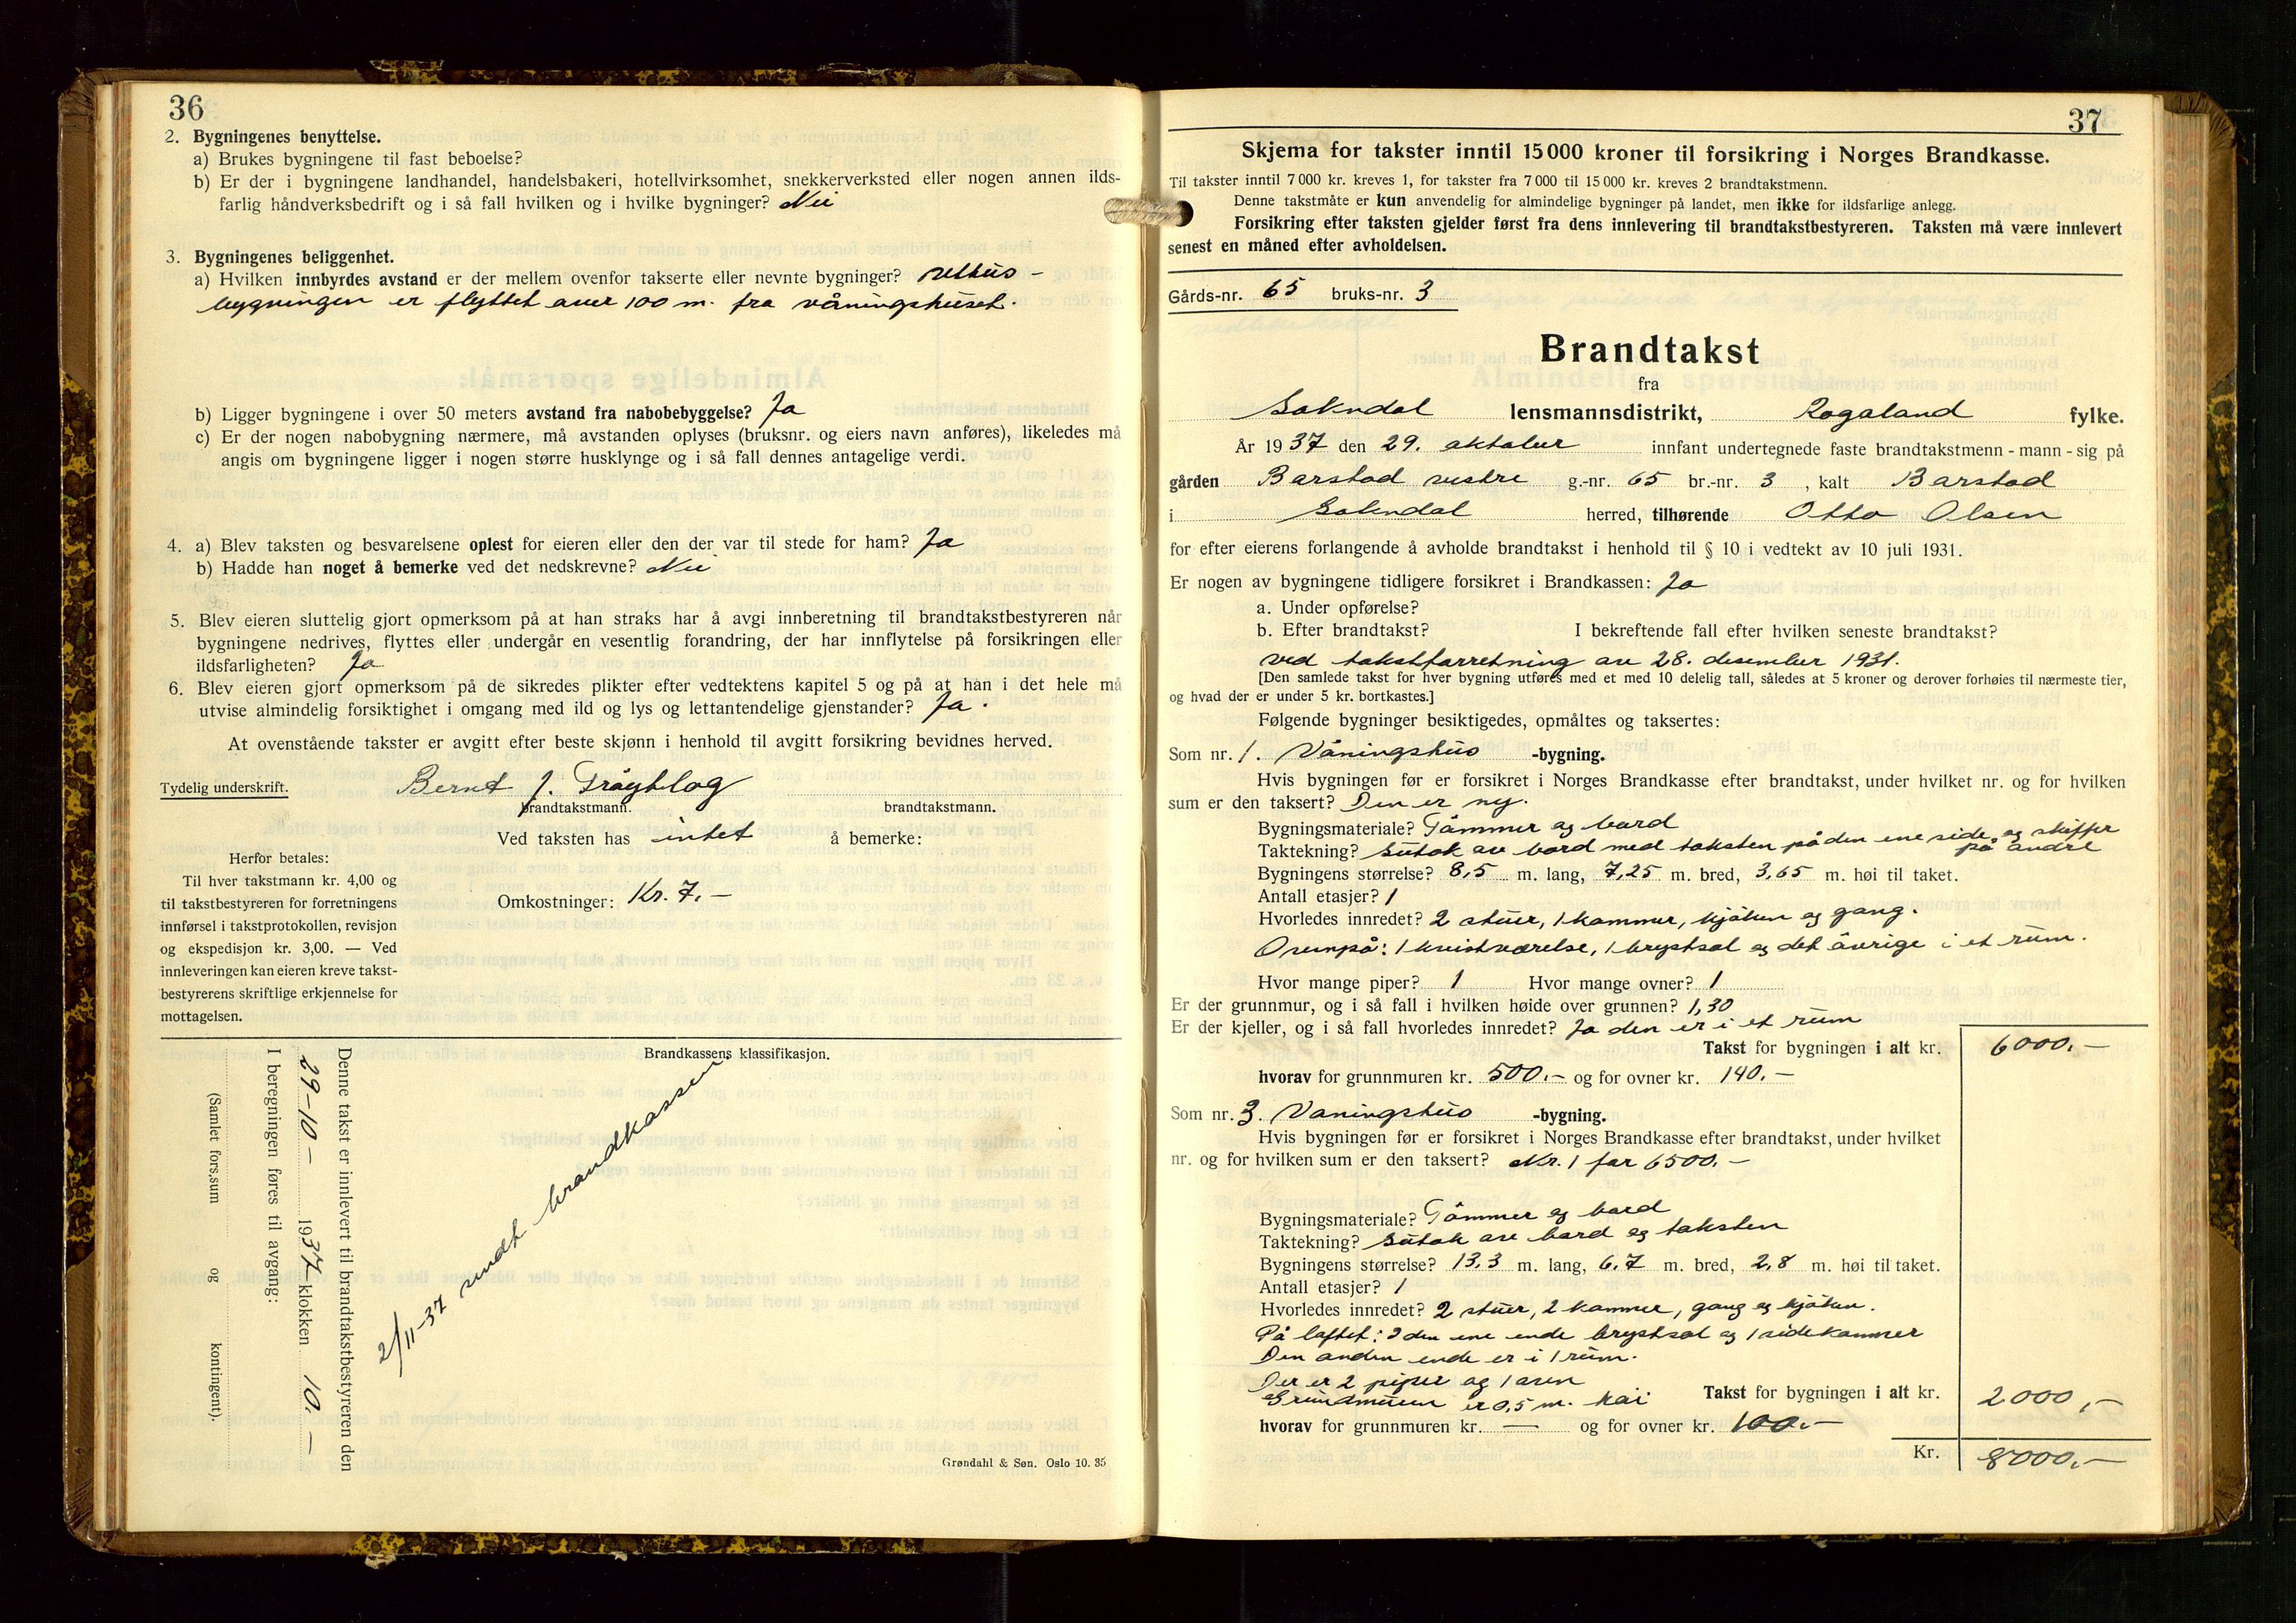 36
2. Bygningenes benyttelse.
a) Brukes bygningene til fast beboelse?
b) Er der i bygningene landhandel, handelsbakeri, hotellvirksomhet, snekkerverksted eller nogen annen ilds-
farlig håndverksbedrift og i så fall hvilken og i hvilke bygninger? Nei
3. Bygningenes beliggenhet.
a) Hvilken innbyrdes avstand er der mellem ovenfor takserte eller nevnte bygninger?
bygningen er flyttet over 100 m. fra våningshuset.
b) Ligger bygningene i over 50 meters avstand fra nabobebyggelse? Ja
c) Er der nogen nabobygning nærmere, må avstanden oplyses (bruksnr. og eiers navn anføres), likeledes må
angis om bygningene ligger i nogen større husklynge og i så fall dennes antagelige verdi.
4. a) Blev taksten og besvarelsene oplest for eieren eller den der var til stede for ham? Ja
b) Hadde han noget å bemerke ved det nedskrevne? Nei
5. Blev eieren sluttelig gjort opmerksom på at han straks har å avgi innberetning til brandtakstbestyreren når
bygningene nedrives, flyttes eller undergår en vesentlig forandring, der har innflytelse på forsikringen eller
ildsfarligheten? Ja
6. Blev eieren gjort opmerksom på de sikredes plikter efter vedtektens kapitel 5 og på at han i det hele må
utvise almindelig forsiktighet i omgang med ild og lys og lettantendelige gjenstander? Ja.
At ovenstående takster er avgitt efter beste skjønn i henhold til avgitt forsikring bevidnes herved.
Tydelig underskrift. Bernt J.
brandtakstmann. brandtakstmann.
Ved taksten has intet å bemerke:
Herfor betales:
Til hver takstmann kr. 4,00 og
til takstbestyreren for forretningens
innførsel i takstprotokollen, revisjon
og ekspedisjon kr. 3,00. — Ved
innleveringen kan eieren kreve takst-
bestyrerens skriftlige erkjennelse for
mottagelsen.
Omkostninger: Kr. 7.-
Brandkassens klassifikasjon.
2/11-37 sendt brandkassen
Denne takst er innlevert til brandtakstbestyreren den
29-10- 1937 klokken 10.-
I beregningen føres til avgang:
(Samlet fors.sum og kontingent).
Grøndahl & Søn. Oslo 10. 35
37
Skjema for takster inntil 15000 kroner til forsikring i Norges Brandkasse.
Til takster inntil 7000 kr. kreves 1, for takster fra 7000 til 15000 kr. kreves 2 brandtakstmenn.
Denne takstmåte er kun anvendelig for almindelige bygninger på landet, men ikke for ildsfarlige anlegg.
Forsikring efter taksten gjelder først fra dens innlevering til brandtakstbestyreren. Taksten må være innlevert
senest en måned efter avholdelsen.
Gårds-nr. 65 bruks-nr. 3
Brandtakst
fra
Sokndal lensmannsdistrikt, Rogaland fylke.
År 1937 den 29. oktober innfant undertegnede faste brandtakstmenn - mann - sig på
gården Barstad vestre g.-nr. 65 br.-nr. 3, kalt Barstad
i Sokndal herred, tilhørende Otto Olsen
for efter eierens forlangende å avholde brandtakst i henhold til § 10 i vedtekt av 10 juli 1931.
Er nogen av bygningene tidligere forsikret i Brandkassen: Ja
a. Under opførelse?
b. Efter brandtakst? I bekreftende fall efter hvilken seneste brandtakst?
ved takstforretning av 28. desember 1931.
[Den samlede takst for hver bygning utføres med et med 10 delelig tall, således at 5 kroner og derover forhøies til nærmeste tier,
og hvad der er under 5 kr. bortkastes.]
Følgende bygninger besiktigedes, opmåltes og taksertes:
Som nr. 1. Våningshus -bygning.
Hvis bygningen før er forsikret i Norges Brandkasse efter brandtakst, under hvilket nr. og for hvilken
sum er den taksert? Den er ny.
Bygningsmateriale? Tømmer og bord
Taktekning? Sutak av bord med taksten på den ene side og skiffer
på andre
Bygningens størrelse? 8,5 m. lang, 7,25 m. bred, 3,65 m. høi til taket.
Antall etasjer? 1
Hvorledes innredet? 2 stuer, 1 kammer, kjøken og gang.
Ovenpå: 1 kvistværelse, 1 brystsal og det øvrige i et rum.
Hvor mange piper? 1 Hvor mange ovner? 1
Er der grunnmur, og i så fall i hvilken høide over grunnen? 1,30
Er der kjeller, og i så fall hvorledes innredet? Ja den er i et rum
Takst for bygningen i alt kr. 6000.-
hvorav for grunnmuren kr. 500.- og for ovner kr. 140.-
Som nr. 3. Vaningshus -bygning.
Hvis bygningen før er forsikret i Norges Brandkasse efter brandtakst, under hvilket
nr. og for hvilken sum er den taksert? Nr. 1 for 6500.-
Bygningsmateriale? Tømmer og bord
Taktekning? Sutak av bord og taksten
Bygningens størrelse? 13,3 m. lang, 6,7 m. bred, 2,8 m. høi til taket.
Antall etasjer? 1
Hvorledes innredet? 2 stuer, 2 kammer, gang og kjøken.
På loftet: I den ene ende brystsal og 1 sidekammer
Den anden ende er i 1 rum.
Der er 2 piper og 1 oven
Grundmuren er 0,5 m. høi Takst for bygningen i alt kr. 2000,-
hvorav for grunnmuren kr. — og for ovner kr. 100.-
Kr. 8000.-